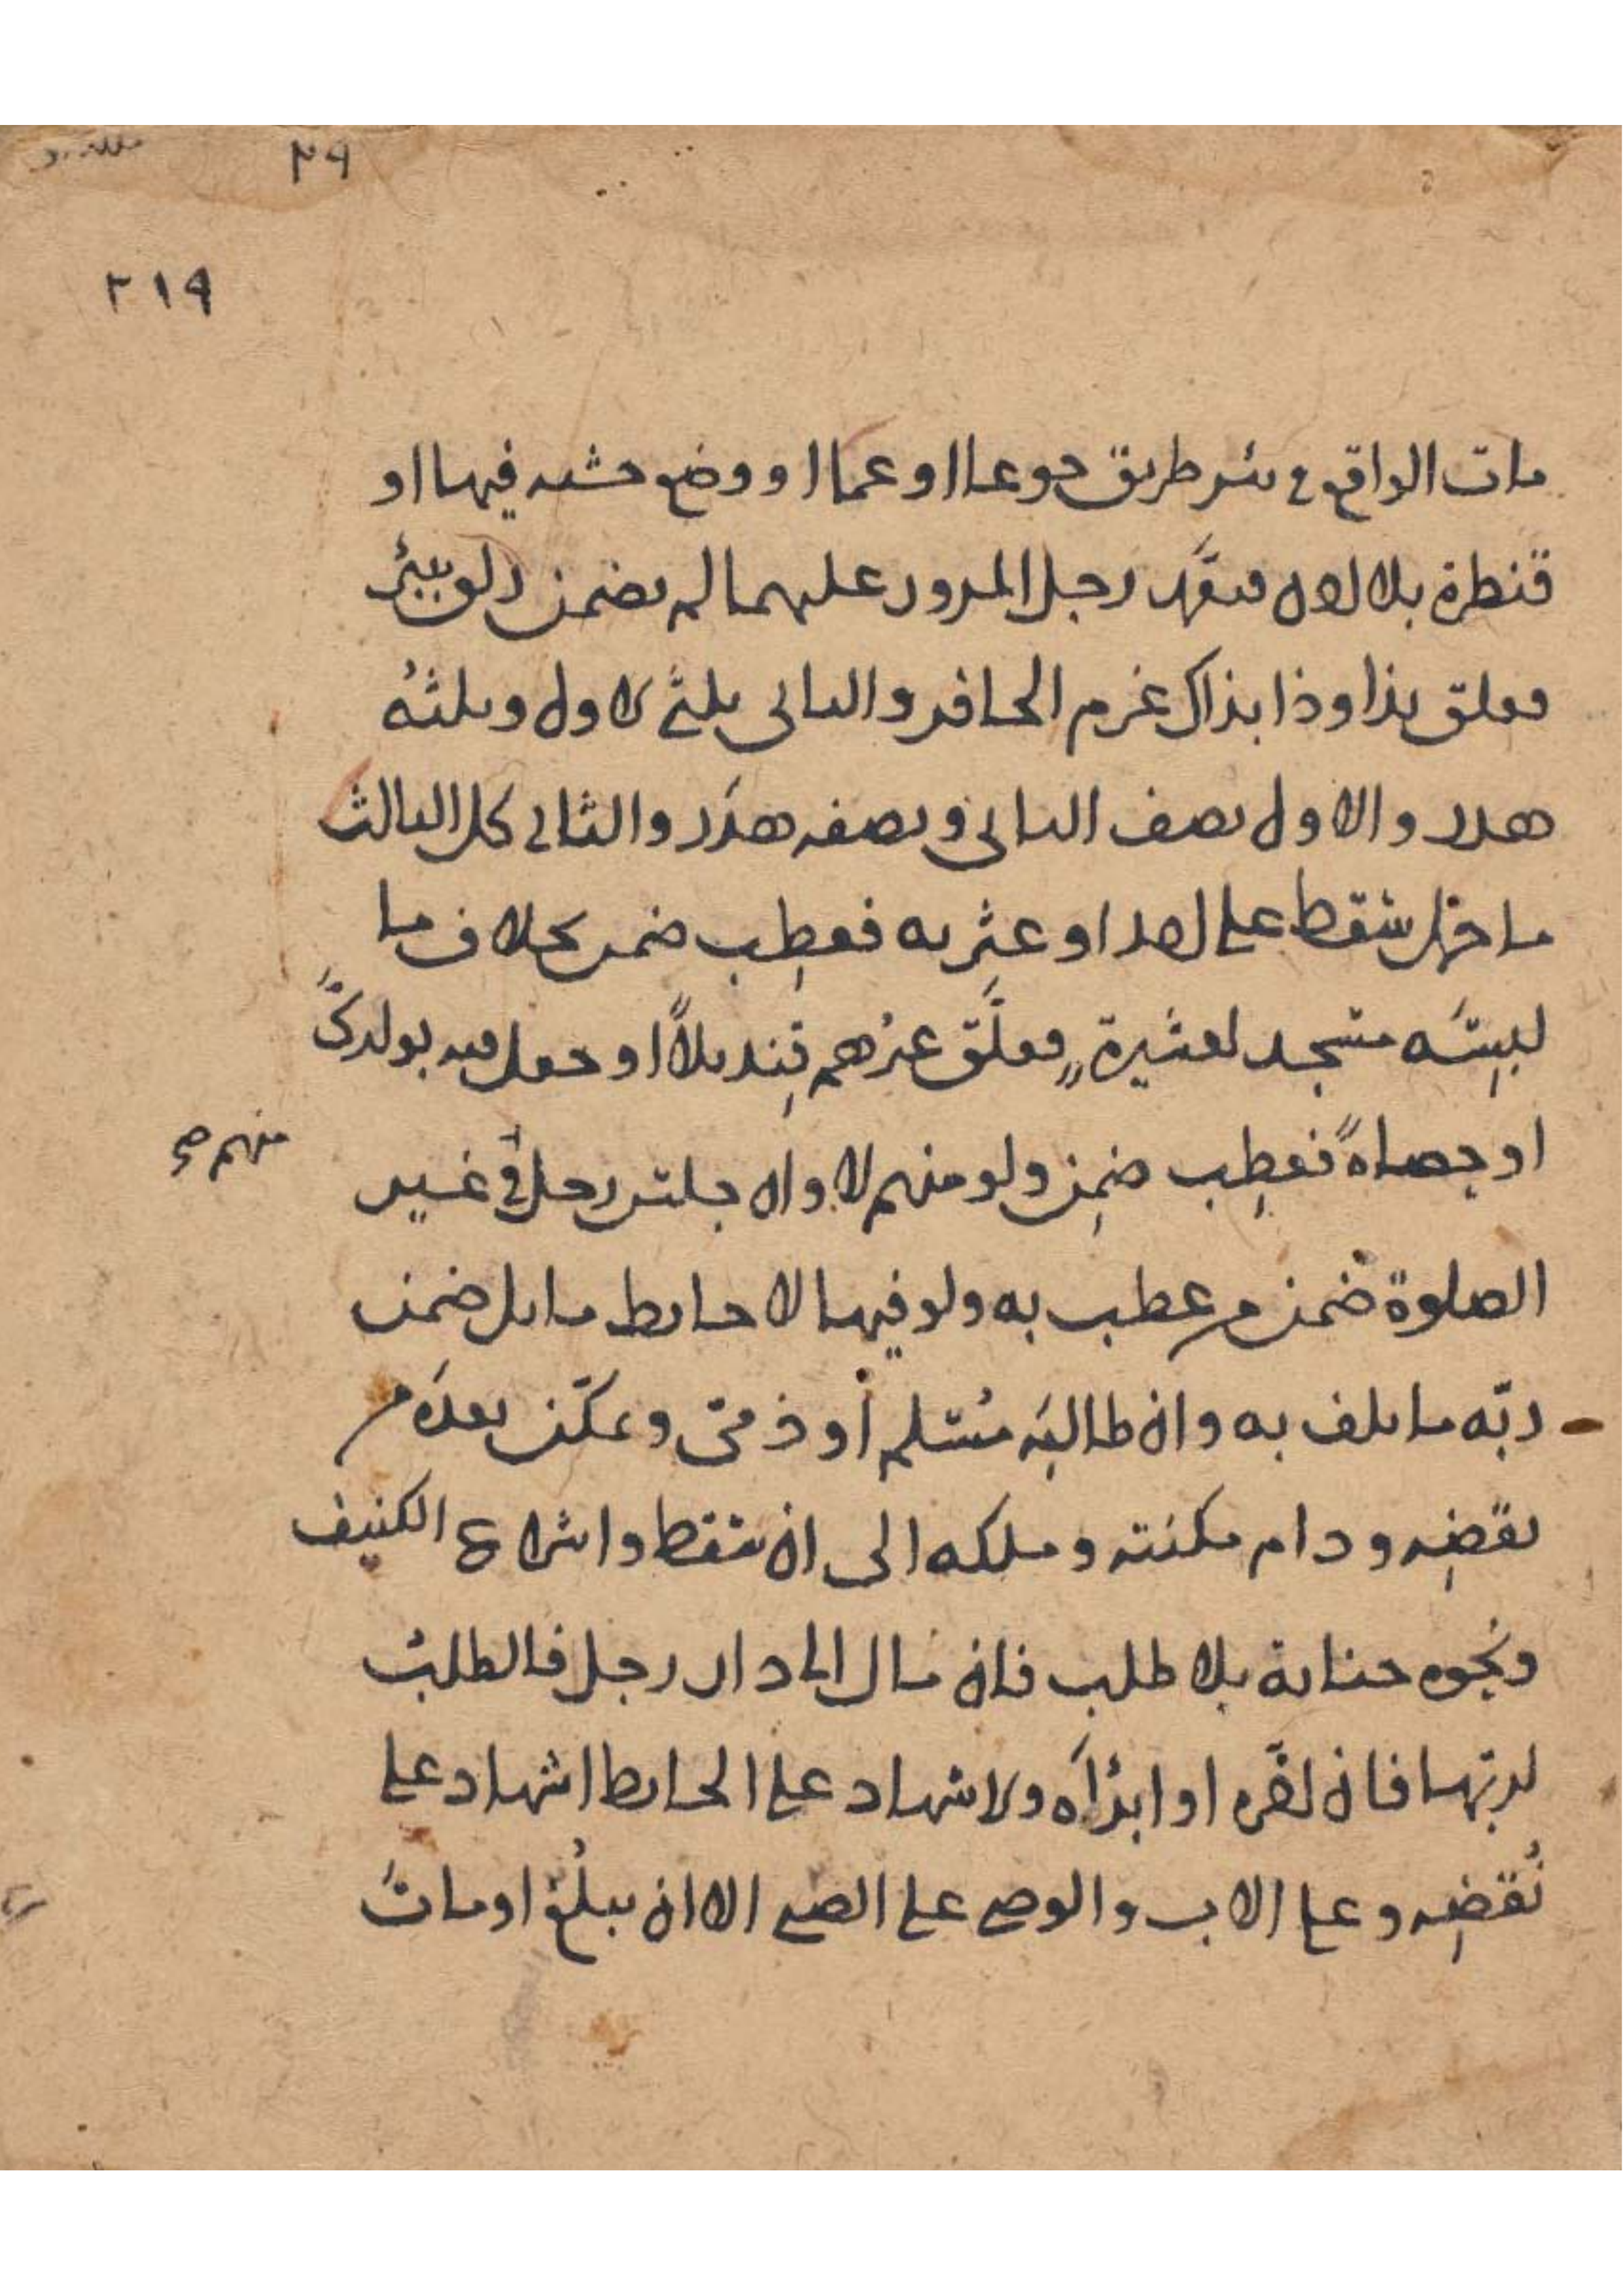 ٢٩
٢١٩
مات الواقع في بئر طريق جوعا او غما او وضع خشبه فيها او
قنطرة بلا اذن فتعمّد رجل المرور عليهما لم يضمن ولو ببئر
فعلق بذا وذا بذاك غرم الحافر والثاني ثلثي الاول وثلثه
هدر والاول نصف الثاني ونصفه هدَر والثاني كل الثالث
ما حمل سقط على احد او عثر به فعطِب ضمن بخلاف ما
لبِسَه مسجد لعشيرةٍ فعلَّق غيرُهم قِنديلاً او جعل فيه بوارىً
او حصاةً فعطِب ضمِن ولو منهم لا وان جلس رجل في غير
منهم صح
الصلوة ضمن من عطب به ولو فيها لا حايط مايل ضمن
ربّه ما تلف به وان طالبَه مُسلم أو ذمىّ وتمكّن بعدَه من
نقضِه ودام مكنته وملكه الى ان سقط واشراع الكنيف
ونحوه جناية بلا طلب فان مال الى دار رجل فالطلبُ
لربّها فان اخّره او ابرَأه والاشهاد على الحايط اشهاد على
نُقضِه وعلى الاب والوصي على الصبي الا ان يبلُغ او ماتَ